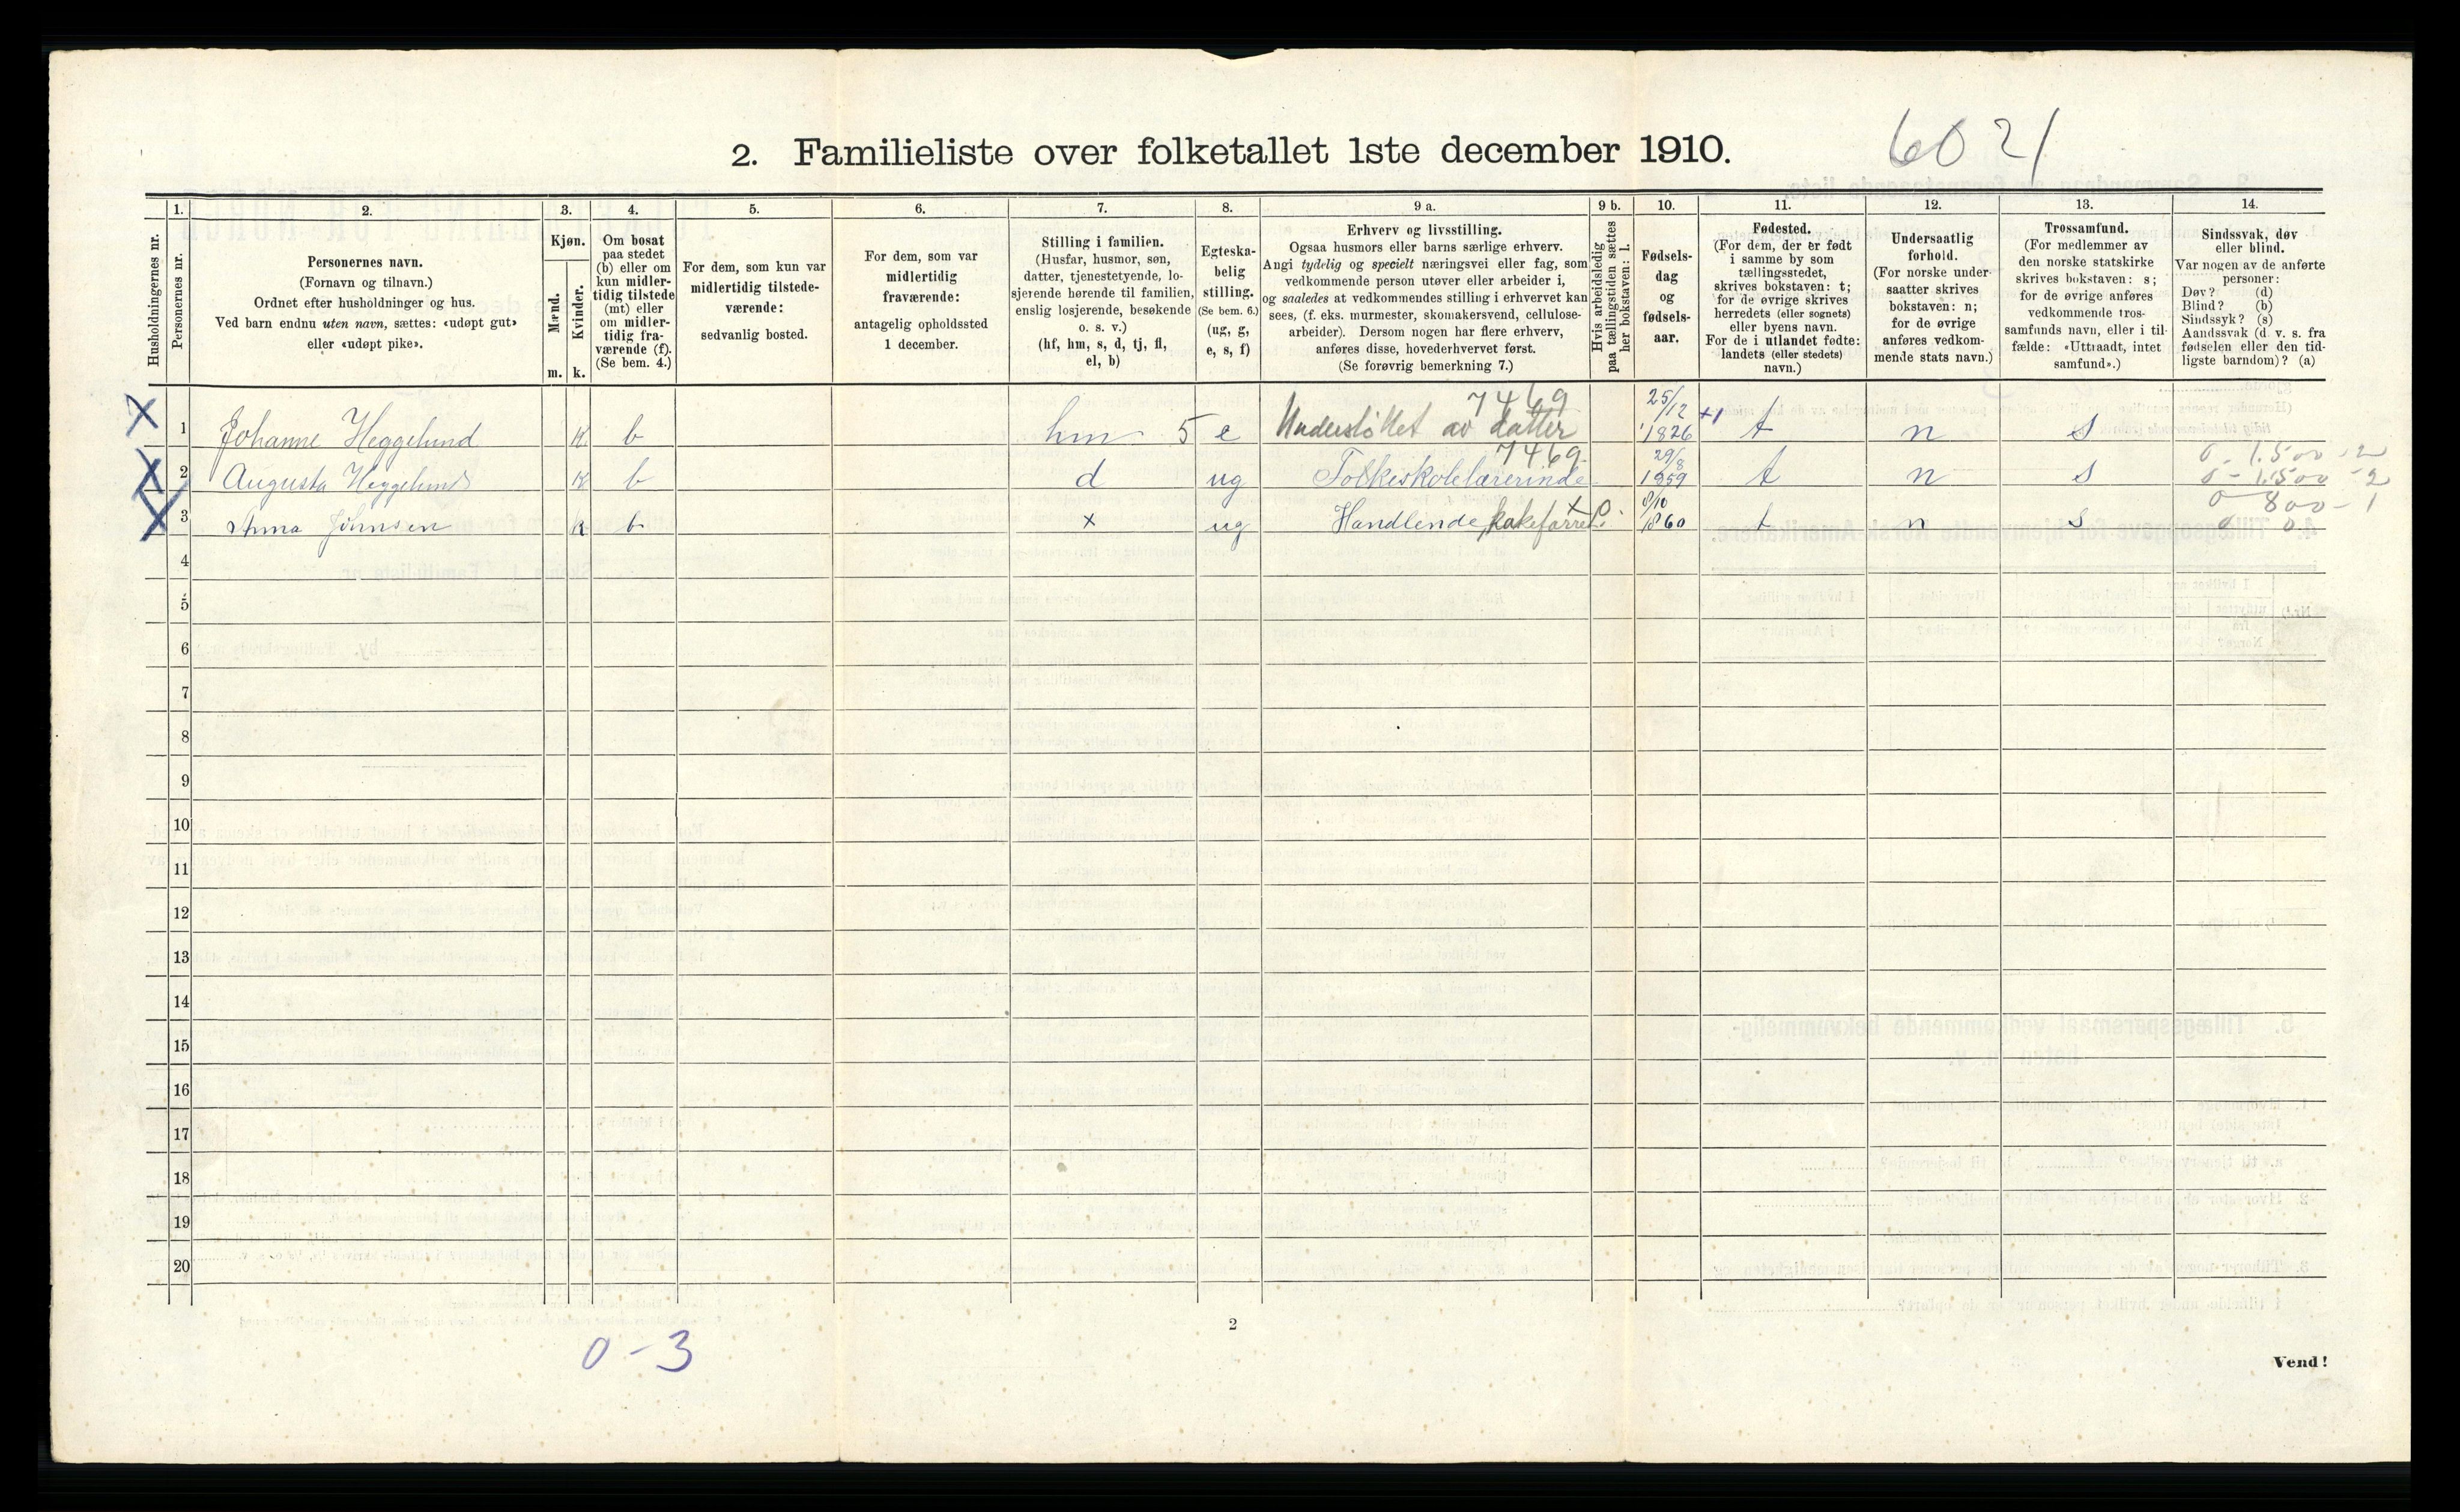 2. Familieliste over folketallet 1ste december 1910.
6021
1. 2. 3. 4. 5. 6. 7. 8. 9 a. 9 b. 10. 11. 12. 13. 14.
Husholdningernes nr.
Personernes nr.
Personernes navn.
(Fornavn og tilnavn.)
Ordnet efter husholdninger og hus.
Ved barn endnu uten navn, sættes: «udøpt gut»
eller «udøpt pike».
Kjøn.
Mænd.
m.
Kvinder.
k.
Om bosat
paa stedet
(b) eller om
kun midler-
tidig tilstede
(mt) eller
om midler-
tidig fra-
værende (f).
(Se bem. 4.)
For dem, som kun var
midlertidig tilstede-
værende:
sedvanlig bosted.
For dem, som var
midlertidig
fraværende:
antagelig opholdssted
1 december.
Stilling i familien.
(Husfar, husmor, søn,
datter, tjenestetyende, lo-
sjerende hørende til familien,
enslig losjerende, besøkende
o. s. v.)
(hf, hm, s, d, tj, fl,
el, b)
Egteska-
belig
stilling.
(Se bem. 6.)
(ug, g,
e, s, f)
Erhverv og livsstilling.
Ogsaa husmors eller barns særlige erhverv.
Angi tydelig og specielt næringsvei eller fag, som
vedkommende person utøver eller arbeider i,
og saaledes at vedkommendes stilling i erhvervet kan
sees, (f. eks. murmester, skomakersvend, cellulose-
arbeider). Dersom nogen har flere erhverv,
anføres disse, hovederhvervet først.
(Se forøvrig bemerkning 7.)
Hvis arbeidsledig
paa tællingstiden sættes
her bokstaven: l.
Fødsels-
dag
og
fødsels-
aar.
Fødested.
(For dem, der er født
i samme by som
tællingsstedet,
skrives bokstaven: t;
for de øvrige skrives
herredets (eller sognets)
eller byens navn.
For de i utlandet fødte:
landets (eller stedets)
navn.)
Undersaatlig
forhold.
(For norske under-
saatter skrives
bokstaven: n;
for de øvrige
anføres vedkom-
mende stats navn.)
Trossamfund.
(For medlemmer av
den norske statskirke
skrives bokstaven: s;
for de øvrige anføres
vedkommende tros-
samfunds navn, eller i til-
fælde: «Uttraadt, intet
samfund».)
Sindssvak, døv
eller blind.
Var nogen av de anførte
personer:
Døv? (d)
Blind? (b)
Sindssyk? (s)
Aandssvak (d. v. s. fra
fødselen eller den tid-
ligste barndom)? (a)
7469 25/12 +1
X 1 Johanne Heggelund K b hm 5 e Understøttet av datter 1826 t n s
7469 29/8 0 - 1.500 - 2
X 2 Augusta Heggelund K b d ug Folkeskolelærerinde 1859 t n s 0 - 1.500 - 2
8/10 0 800 - 1
X 3 Anna Johnsen K b x ug Handlende, x p. 1860 t n s 0 0
4
5
6
7
8
9
10
11
12
13
14
15
16
17
18
19
20
0 - 3
2
Vend!